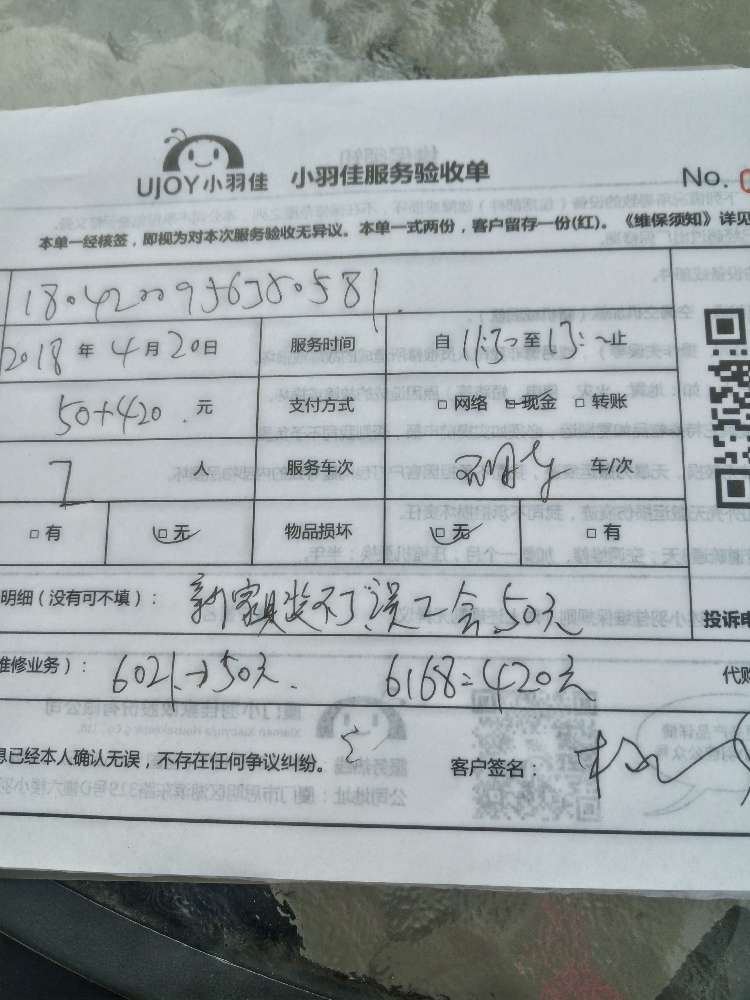 UJOY小羽佳 小羽佳服务验收单 No.
本单一经核签，即视为对本次服务验收无异议。本单一式两份，客户留存一份(红)。《维保须知》详见
1804200956380581
2018 年 4 月 20 日 服务时间 自 11:30 至 13: 止
50+420 元 支付方式 □ 网络 □ 现金 □ 转账
人 服务车次 车/次
□ 有 □ 无 物品损坏 □ 无 □ 有
明细（没有可不填）： 新家具装不了误工金50元
投诉电
维修业务）： 6021→50元 6168=420元 代购
息已经本人确认无误，不存在任何争议纠纷。 客户签名：